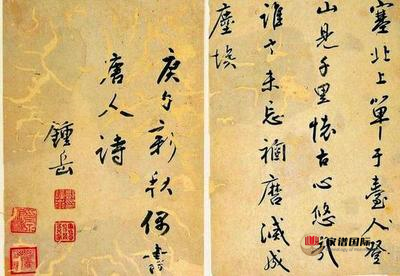 塞北上單于臺人登
山見千里懷古心悠哉
誰言未忘禍磨滅成
塵埃
庚午新秋偶書
唐人詩
鍾岳
家谱国际